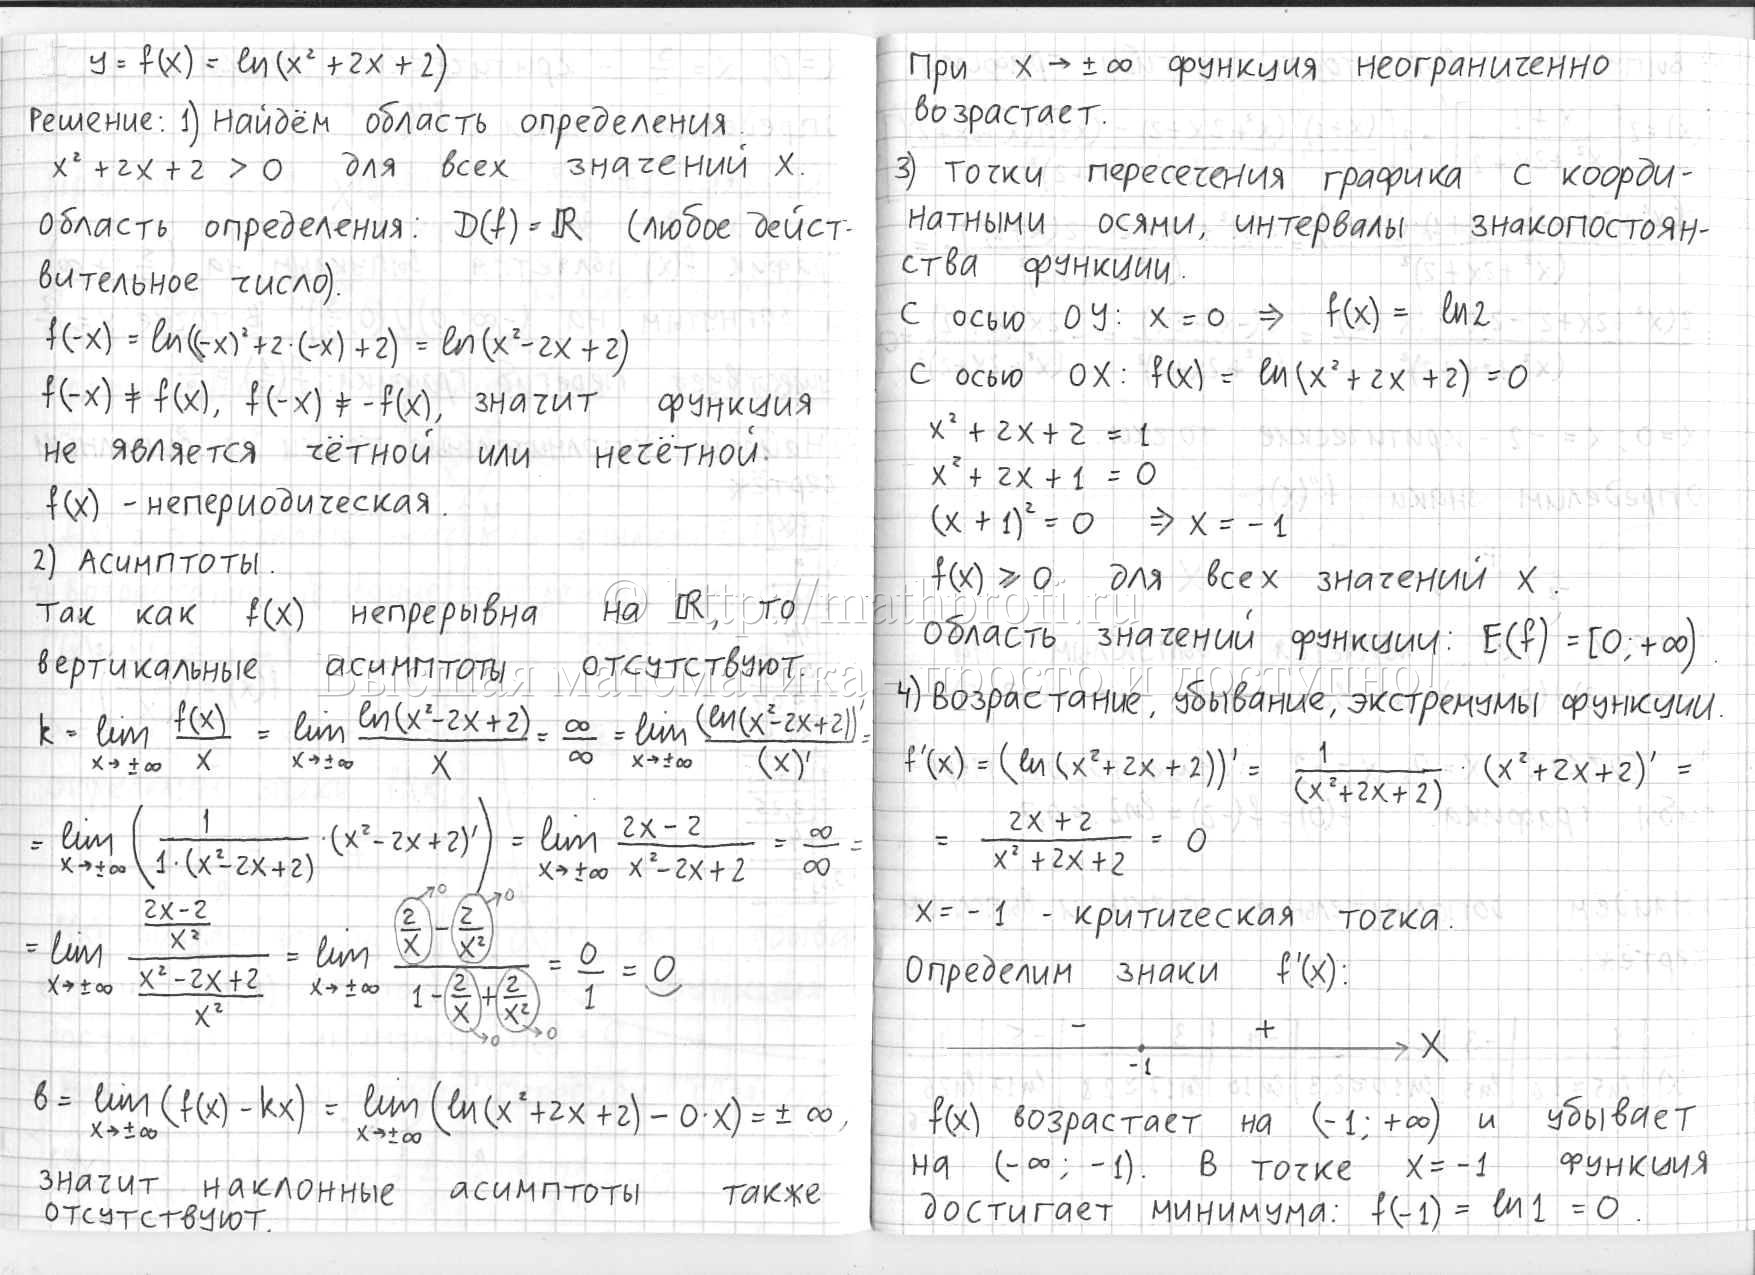 y = f(x) = ln(x² + 2x + 2)
Решение: 1) Найдём область определения.
x² + 2x + 2 > 0 для всех значений x.
область определения: D(f) = ℝ (любое дейст-
вительное число).
f(-x) = ln((-x)² + 2·(-x) + 2) = ln(x² - 2x + 2)
f(-x) ≠ f(x), f(-x) ≠ -f(x), значит функция
не является чётной или нечётной.
f(x) - непериодическая.
2) Асимптоты.
так как f(x) непрерывна на ℝ, то
вертикальные асимптоты отсутствуют.
k = lim x→±∞ f(x)/x = lim x→±∞ ln(x²-2x+2)/x = ∞/∞ = lim x→±∞ (ln(x²-2x+2))'/(x)' =
= lim x→±∞ (1/(1·(x²-2x+2)) · (x²-2x+2)') = lim x→±∞ (2x-2)/(x²-2x+2) = ∞/∞ =
= lim x→±∞ ((2x-2)/x²)/((x²-2x+2)/x²) = lim x→±∞ (2/x →0 - 2/x² →0)/(1 - 2/x →0 + 2/x² →0) = 0/1 = 0
b = lim x→±∞ (f(x) - kx) = lim x→±∞ (ln(x² + 2x + 2) - 0·x) = ±∞,
значит наклонные асимптоты также
отсутствуют.
При x → ±∞ функция неограниченно
возрастает.
3) Точки пересечения графика с коорди-
натными осями, интервалы знакопостоян-
ства функции.
С осью OY: x = 0 ⇒ f(x) = ln2
С осью OX: f(x) = ln(x² + 2x + 2) = 0
x² + 2x + 2 = 1
x² + 2x + 1 = 0
(x + 1)² = 0 ⇒ x = -1
f(x) ⩾ 0 для всех значений x.
Область значений функции: E(f) = [0; +∞).
4) Возрастание, убывание, экстремумы функции.
f'(x) = (ln(x² + 2x + 2))' = 1/(x²+2x+2) · (x²+2x+2)' =
= (2x + 2)/(x² + 2x + 2) = 0
x = -1 - критическая точка.
Определим знаки f'(x):
- +
-1 X
f(x) возрастает на (-1; +∞) и убывает
на (-∞; -1). В точке x = -1 функция
достигает минимума: f(-1) = ln1 = 0.
© http://mathprofi.ru
Высшая математика – просто и доступно!